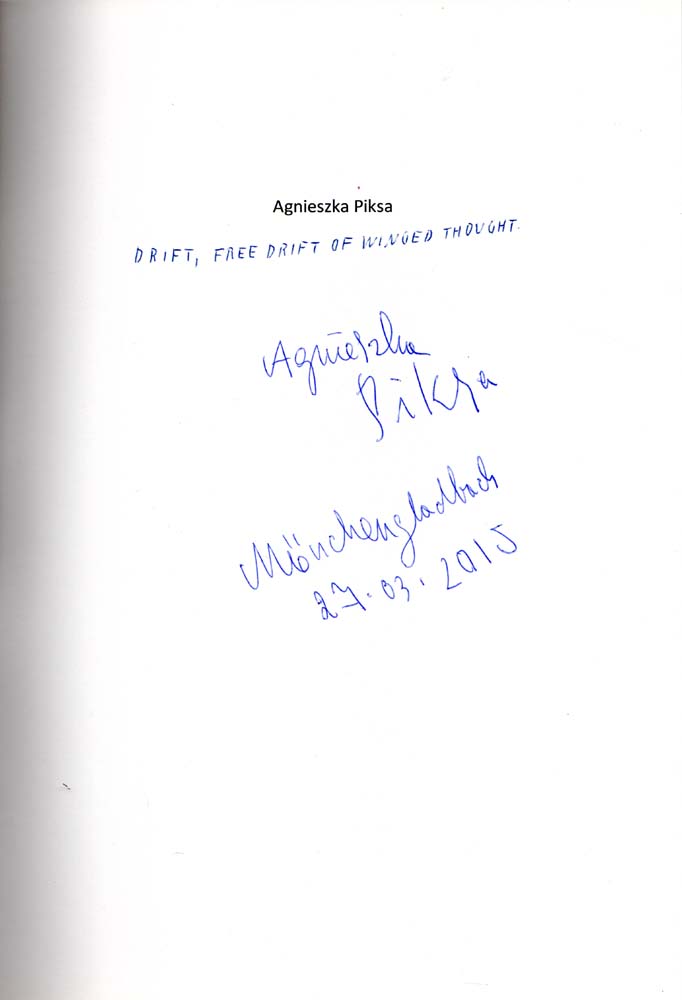 Agnieszka Piksa
DRIFT, FREE DRIFT OF WINGED THOUGHT.
Agnieszka
Piksa
Mönchengladbach
27.03.2015